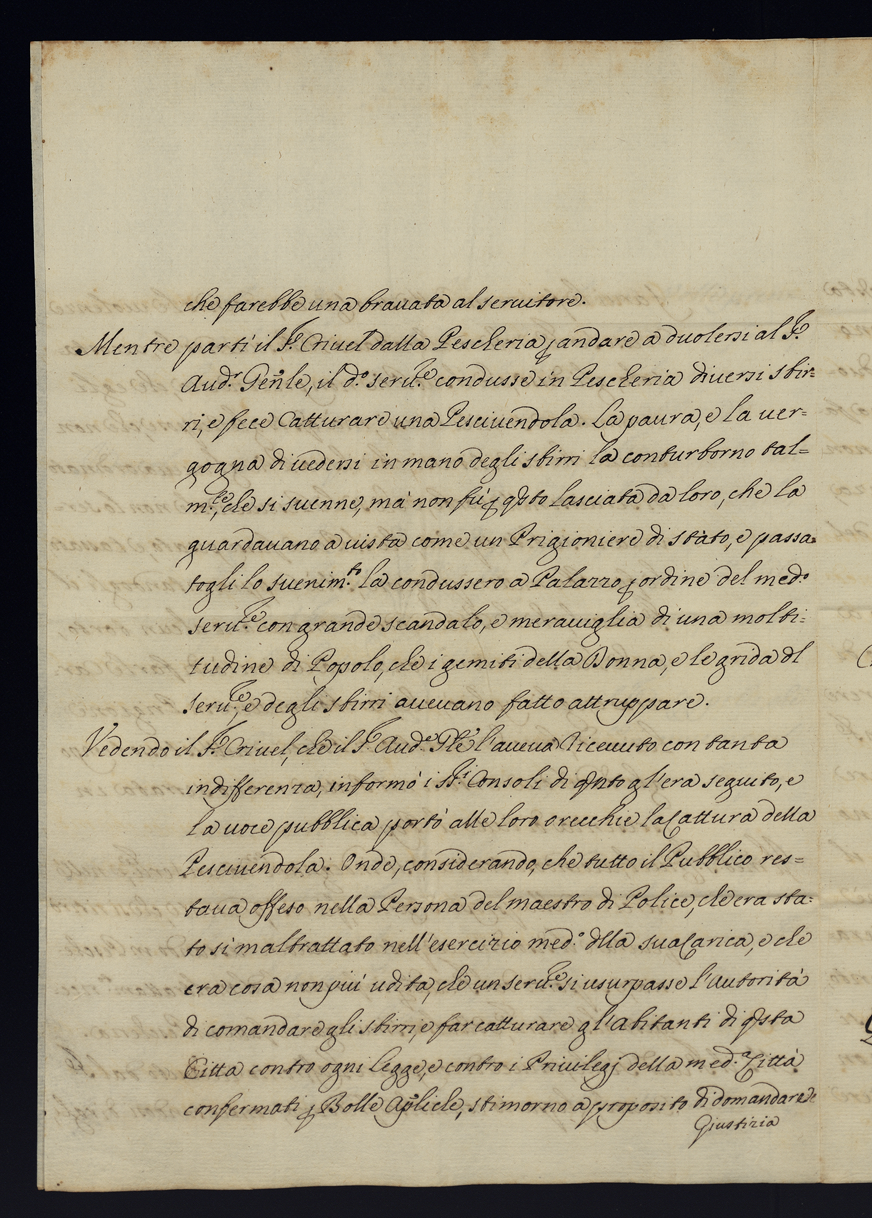 che farebbe una brauata al seruitore.
Mentre partì il Sr. Criuel dalla Pescheria p andare a dolersi al Sr.
Audr. Genle, il do. serure. condusse in Pescheria diuersi sbir=
ri, e fece Catturare una Pesciuendola. La paura, e la uer=
gogna di uedersi in mano degli sbirri la conturborno tal=
mte, che si suenne, mà non fù p qsto lasciata da loro, che la
guardauano a uista come un Prigioniere di stàto, e passa=
togli lo suenimto. la condussero a Palazzo p ordine del medo.
serure. con grande scandalo, e merauiglia di una molti=
tudine di Popolo, che i gemiti della Donna, e le grida dl
serure, e degli sbirri aueuano fatto attruppare.
Vedendo il Sr. Criuel, che il Sr. Audre. Gle l'aueua riceuuto con tanta
indifferenza, informò i SSri. Consoli di qnto gl'era seguito, e
la uoce pubblica portò alle loro orecchie la Cattura della
Pesciuendola. Onde, considerando, che tutto il Pubblico res=
taua offeso nella Persona del maestro di Police, che era sta=
to sì maltrattato nell'esercizio medo. dlla sua Carica, e che
era cosa non più udita, che un serure. si usurpasse l'autorità
di comandare gli sbirri, e far catturare gl'abitanti di qsta
Città contro ogni legge, e contro i Priuilegj della meda. Città
confermati p Bolle Apliche, stimorno a proposito di domandare
Giustizia